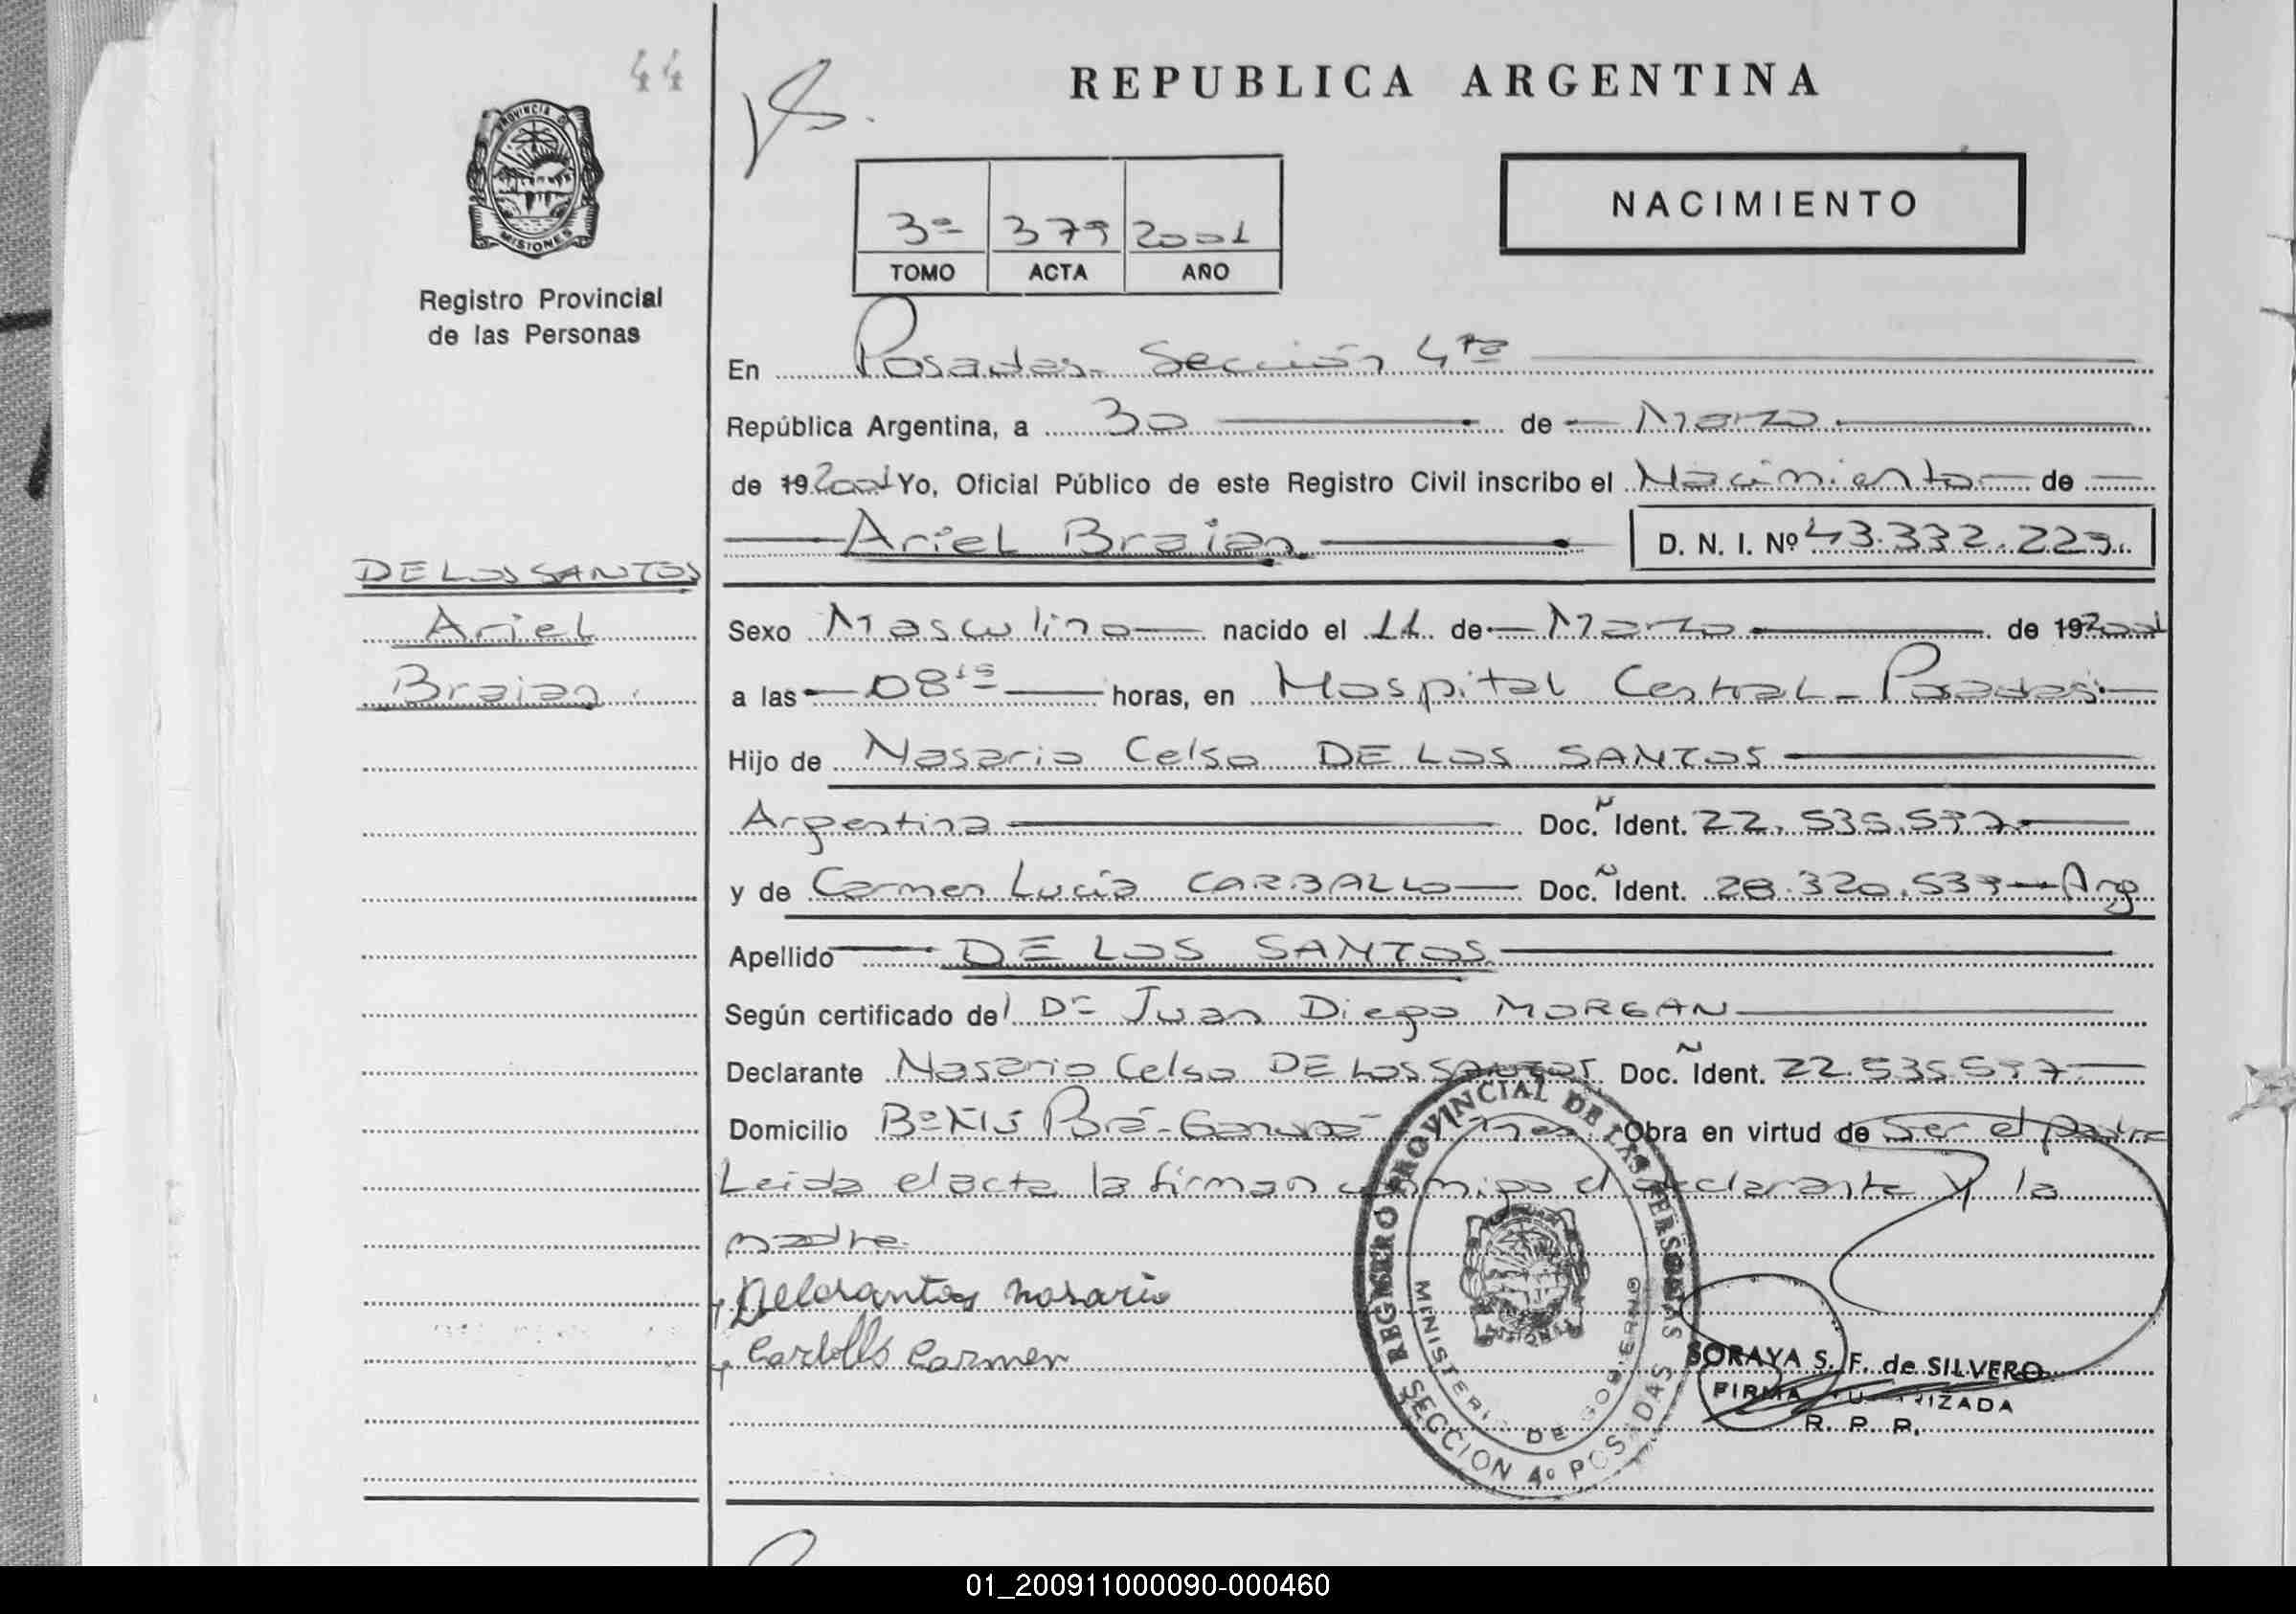 44
PROVINCIA D
MISIONES
Registro Provincial
de las Personas
REPUBLICA ARGENTINA
NACIMIENTO
3º 379 2001
TOMO ACTA AÑO
En Posadas - Sección 4ta
República Argentina, a 30 de Marzo
de 19 2001 Yo, Oficial Público de este Registro Civil inscribo el Nacimiento de
Ariel Braian D. N. I. Nº 43.332.223
DE LOS SANTOS
Ariel
Braian
Sexo Masculino nacido el 11 de Marzo de 19 2001
a las 08 15 horas, en Hospital Central - Posadas
Hijo de Nasario Celso DE LOS SANTOS
Argentina Doc. N Ident. 22.535.597
y de Carmen Lucia CARBALLO Doc. N Ident. 28.320.539 - Arg
Apellido DE LOS SANTOS
Según certificado del Dr Juan Diego MORGAN
Declarante Nasario Celso DE LOS SANTOS Doc. N Ident. 22.535.597
Domicilio Bº Ñu Porá - Garupá Mnes. Obra en virtud de ser el padre
Leida el acta la firman conmigo el declarante y la
madre
Delosantos nasario
Carballo Carmen
REGISTRO PROVINCIAL DE LAS PERSONAS
MINISTERIO DE GOBIERNO
SECCION 4º POSADAS
SORAYA S. F. de SILVERO
FIRMA AUTORIZADA
R. P. P.
01_200911000090-000460